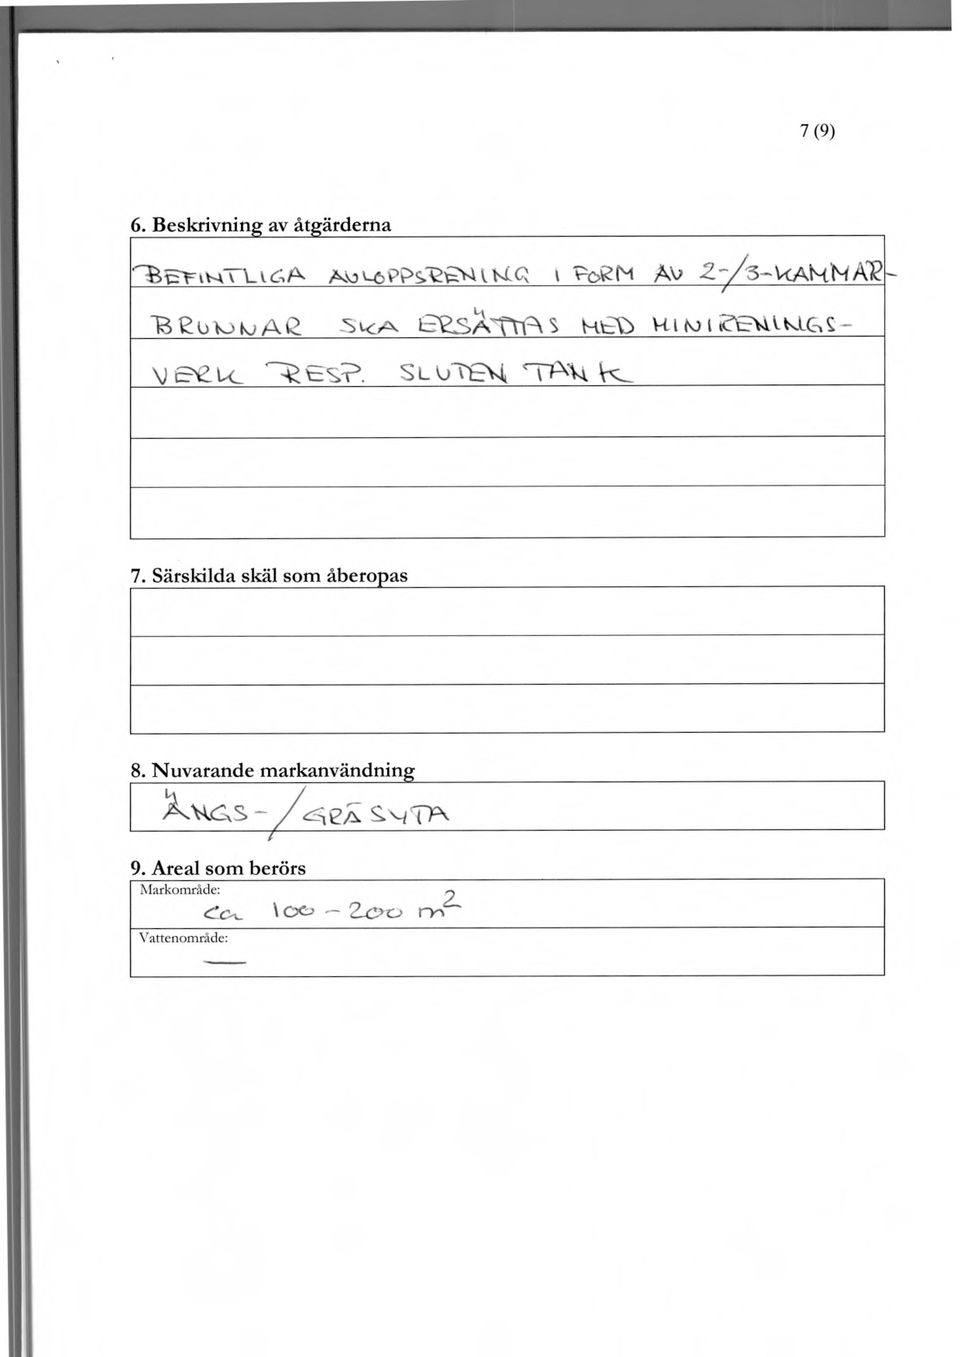 7 (9)
6. Beskrivning av åtgärderna
BEFINTLIGA AVLOPPSRENING I FORM AV 2-/3-KAMMAR-
BRUNNAR SKA ERSÄTTAS MED MINIRENINGS-
VERK RESP. SLUTEN TANK
7. Särskilda skäl som åberopas
8. Nuvarande markanvändning
ÄNGS-/GRÄSYTA
9. Areal som berörs
Markområde:
ca 100 - 200 m²
Vattenområde:
—